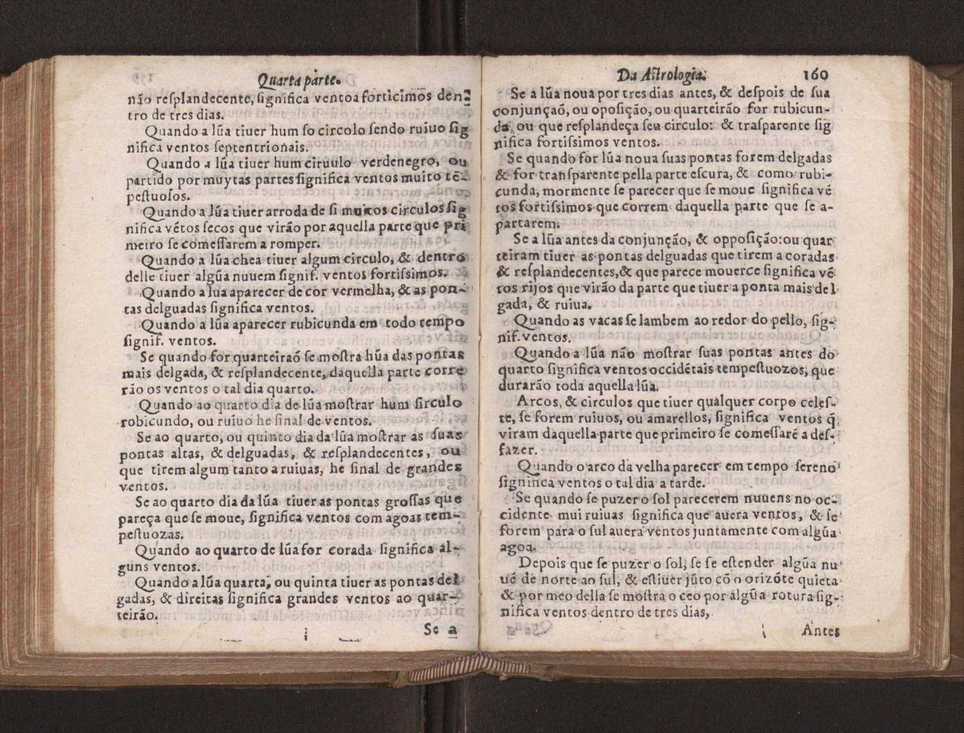 Quarta parte.
não resplandecente, significa ventoa forticimos den-
tro de tres dias.
Quando a lũa tiuer hum so circolo sendo ruiuo sig
nifica ventos septentrionais.
Quando a lũa tiuer hum ciruulo verdenegro, ou
partido por muytas partes significa ventos muito tẽ-
pestuosos.
Quando a lũa tiuer arroda de si muitos circulos sig
nifica vẽtos secos que virão por aquella parte que pri
meiro se comessarem a romper.
Quando a lũa chea tiuer algum circulo, & dentro
delle tiuer algũa nuuem signif. ventos fortissimos.
Quando a lua aparecer de cor vermelha, & as pon-
tas delguadas significa ventos.
Quando a lũa aparecer rubicunda em todo tempo
signif. ventos.
Se quando for quarteiraõ se mostra hũa das pontas
mais delgada, & resplandecente, daquella parte corre
rão os ventos o tal dia quarto.
Quando ao quarto dia de lũa mostrar hum sirculo
robicundo, ou ruiuo he sinal de ventos.
Se ao quarto, ou quinto dia da lũa mostrar as suas
pontas altas, & delguadas, & resplandecentes, ou
que tirem algum tanto a ruiuas, he sinal de grandes
ventos.
Se ao quarto dia da lũa tiuer as pontas grossas que
pareça que se moue, significa ventos com agoas tem-
pestuozas.
Quando ao quarto de lũa for corada significa al-
guns ventos.
Quando a lũa quarta, ou quinta tiuer as pontas del
gadas, & direitas significa grandes ventos ao quar-
teirão.
Se a
Da Astrologia. 160
Se a lũa noua por tres dias antes, & despois de sua
conjunçaõ, ou oposição, ou quarteirão for rubicun-
da, ou que resplandeça seu circulo: & trasparente sig
nifica fortissimos ventos.
Se quando for lũa noua suas pontas forem delgadas
& for transparente pella parte escura, & como rubi-
cunda, mormente se parecer que se moue significa vẽ
tos fortissimos que correm daquella parte que se a-
partarem.
Se a lũa antes da conjunção, & opposição: ou quar
teiram tiuer as pontas delguadas que tirem a coradas
& resplandecentes, & que parece mouerce significa vẽ
tos rijos que virão da parte que tiuer a ponta mais del
gada, & ruiua.
Quando as vacas se lambem ao redor do pello, sig-
nif. ventos.
Quando a lũa não mostrar suas pontas antes do
quarto significa ventos occidẽtais tempestuozos, que
durarão toda aquella lũa.
Arcos, & circulos que tiuer qualquer corpo celes-
te, se forem ruiuos, ou amarellos, significa ventos q̃
viram daquella parte que primeiro se comessarẽ a des-
fazer.
Quando o arco da velha parecer em tempo sereno
significa ventos o tal dia a tarde.
Se quando se puzer o sol parecerem nuuens no oc-
cidente mui ruiuas significa que auera ventos, & se
forem para o sul auera ventos juntamente com algũa
agoa.
Depois que se puzer o sol, se se estender algũa nu
uẽ de norte ao sul, & estiuer jũto cõ o orizõte quieta
& por meo della se mostra o ceo por algũa rotura sig-
nifica ventos dentro de tres dias,
Antes